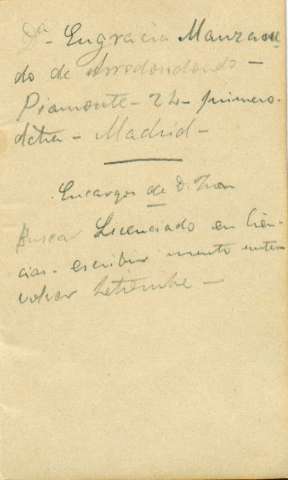 Dª Engracia Manzane
do de Arredondo -
Piamonte - 24 - primero
dcha - Madrid -
Encargos de D. Fran
Buscar Licenciado en Cien-
cias - escribir
volver Setiembre -